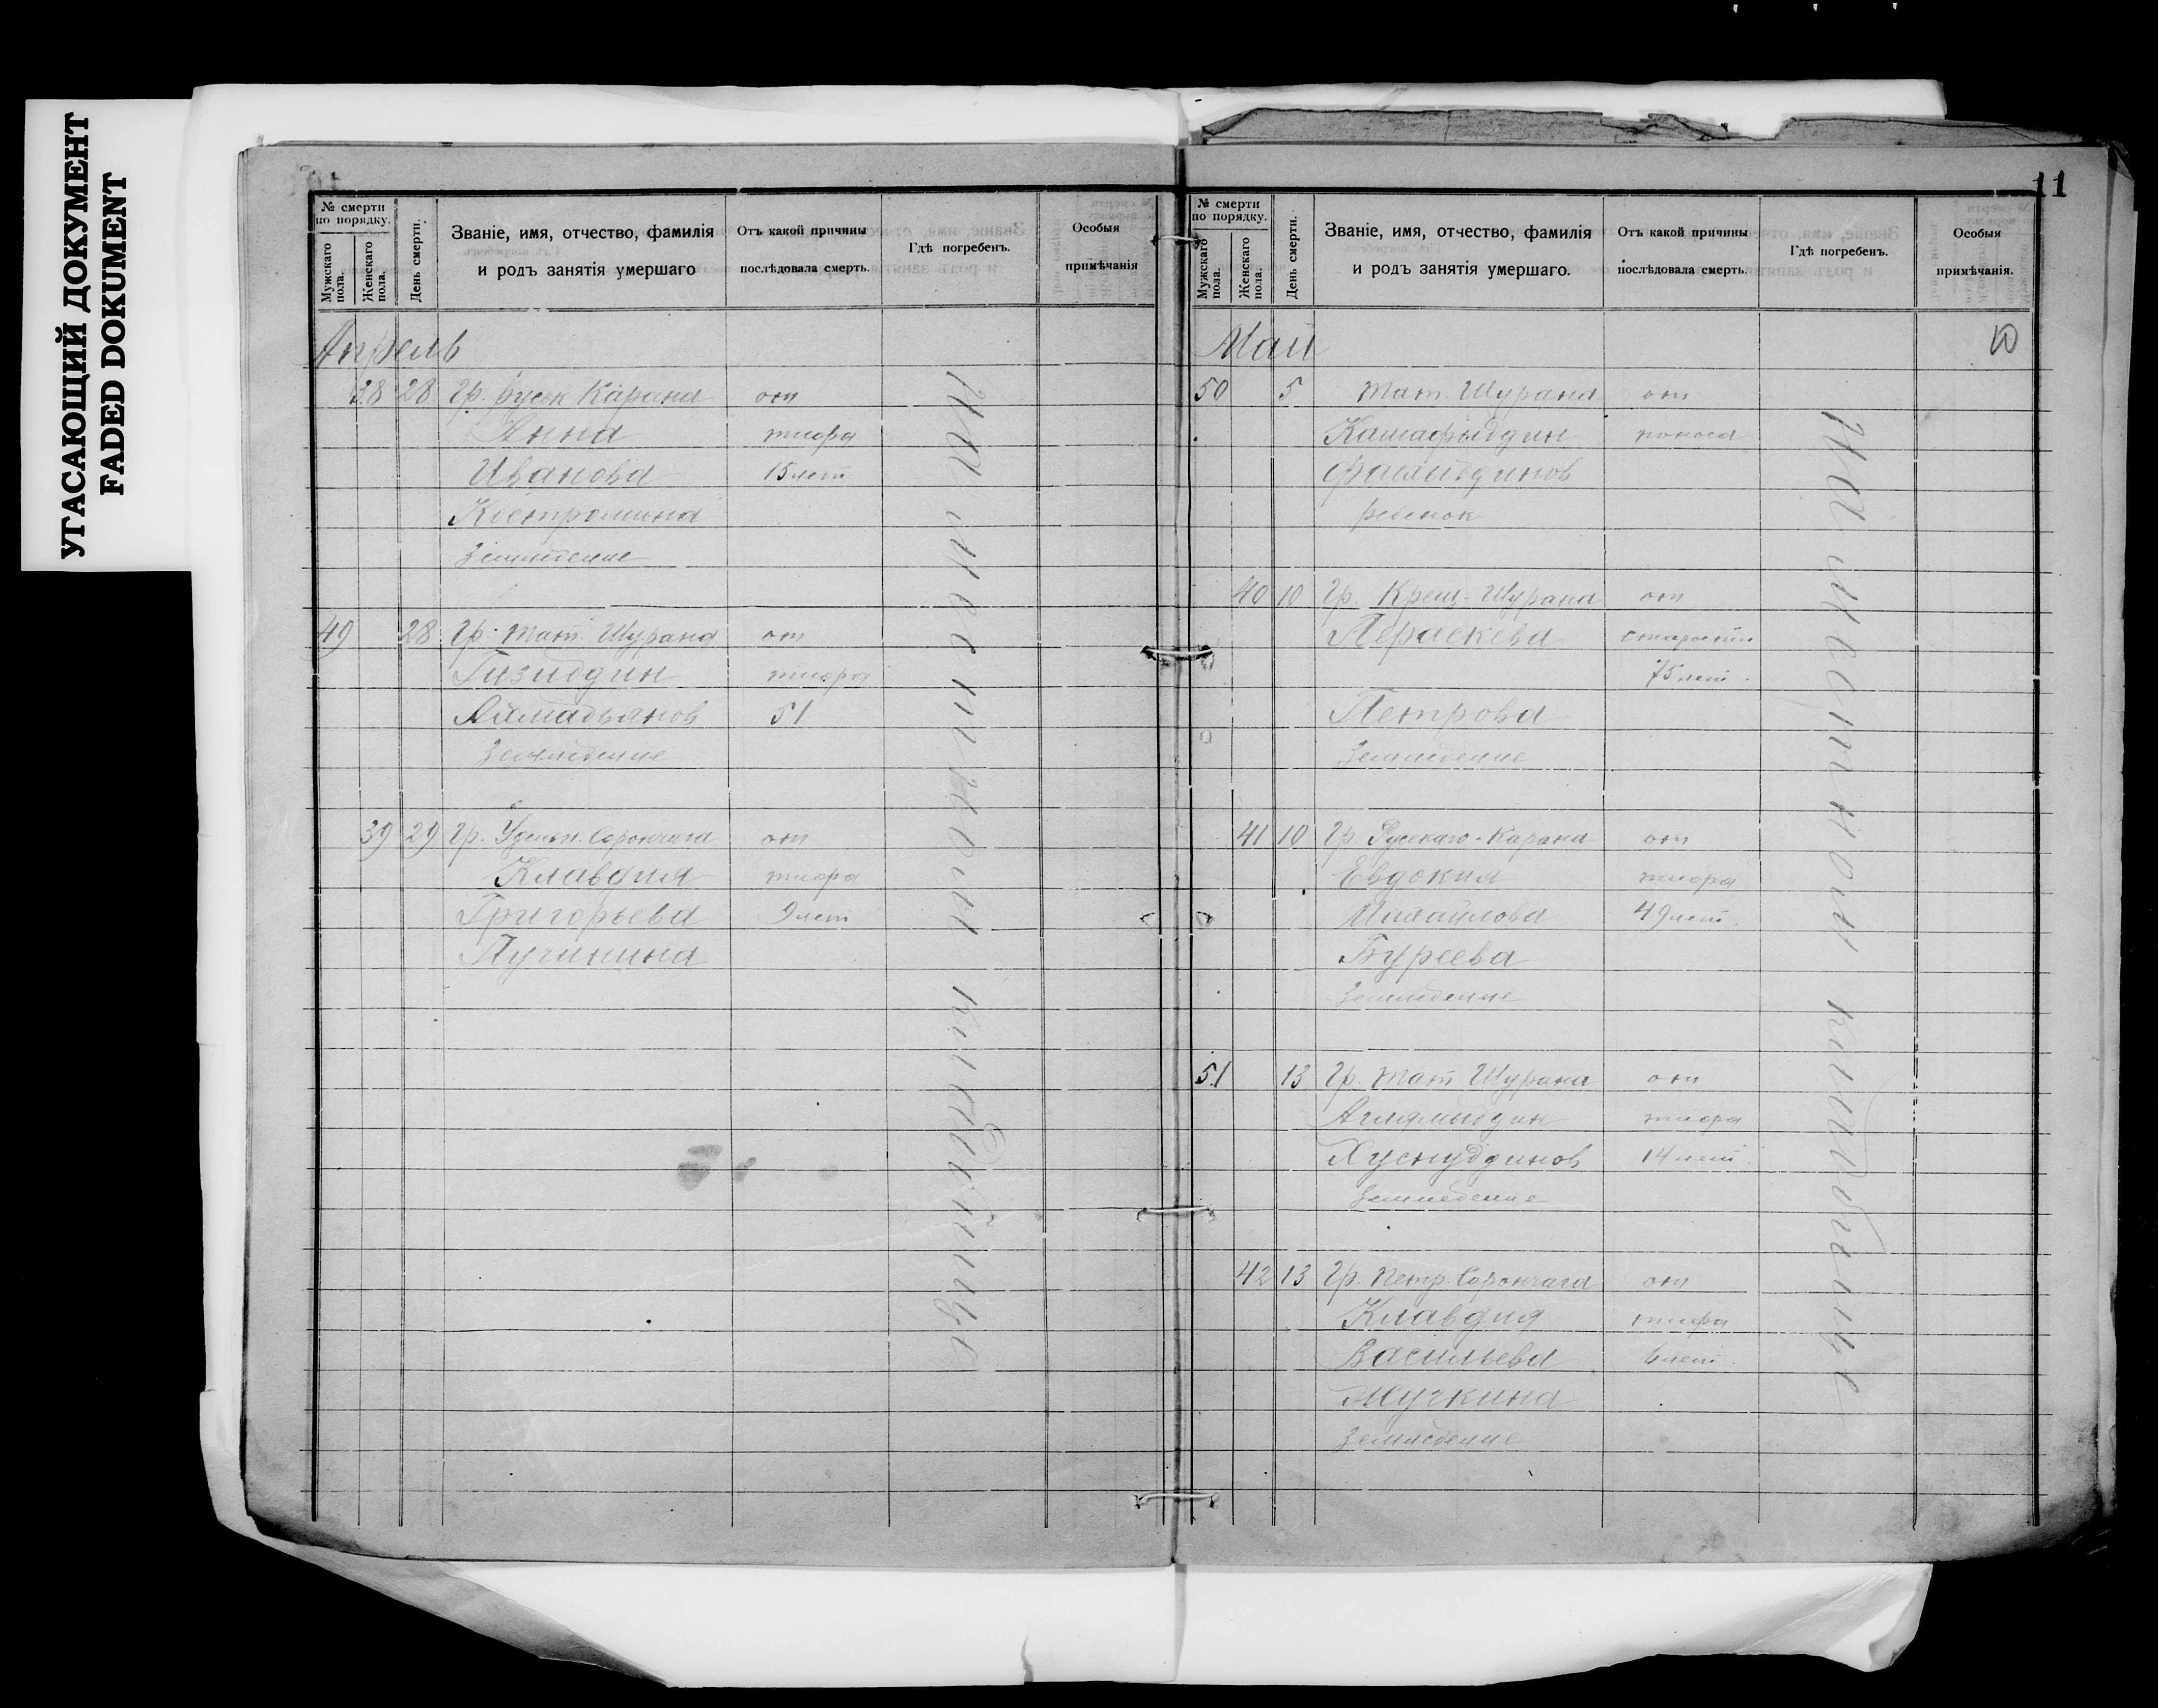 УГАСАЮЩИЙ ДОКУМЕНТ
FADED DOKUMENT
№ смерти по порядку.
Мужскаго пола.
Женскаго пола.
День смерти.
Званіе, имя, отчество, фамилія
и родъ занятія умершаго
Отъ какой причины
послѣдовала смерть.
Гдѣ погребенъ.
Особыя
примѣчанія
Апрель
38 28 Гр. русск Карана от
Анна тифа
Иванова 15 лет
Костромина
Земледелие
49 28 Гр. Тат. Шурана от
Гизиддин тифа
Ахмадьянов 51
Земледелие
39 29 Гр. Удельн. Сарончага от
Клавдия тифа
Григорьева 9 лет
Пучинина
На местном кладбище
11
№ смерти по порядку.
Мужскаго пола.
Женскаго пола.
День смерти.
Званіе, имя, отчество, фамилія
и родъ занятія умершаго.
Отъ какой причины
послѣдовала смерть.
Гдѣ погребенъ.
Особыя
примѣчанія.
Май
10
50 5 Тат. Шурана от
Камафыддин поноса
ребенок
40 10 Гр. Крещ-Шурана от
Пераскева старости
75 лет.
Петрова
Земледелие
41 10 Гр. Русскаго-Карана от
Евдокия тифа
Михайлова 49 лет.
Буреева
Земледелие
51 13 Гр. Тат Шурана от
Аглямыддин тифа
Хуснуддинов 14 лет.
Земледелие
42 13 Гр. Петр. Сарончага от
Клавдия тифа
Васильева 6 лет.
Мучкина
Земледелие
На местном кладбище